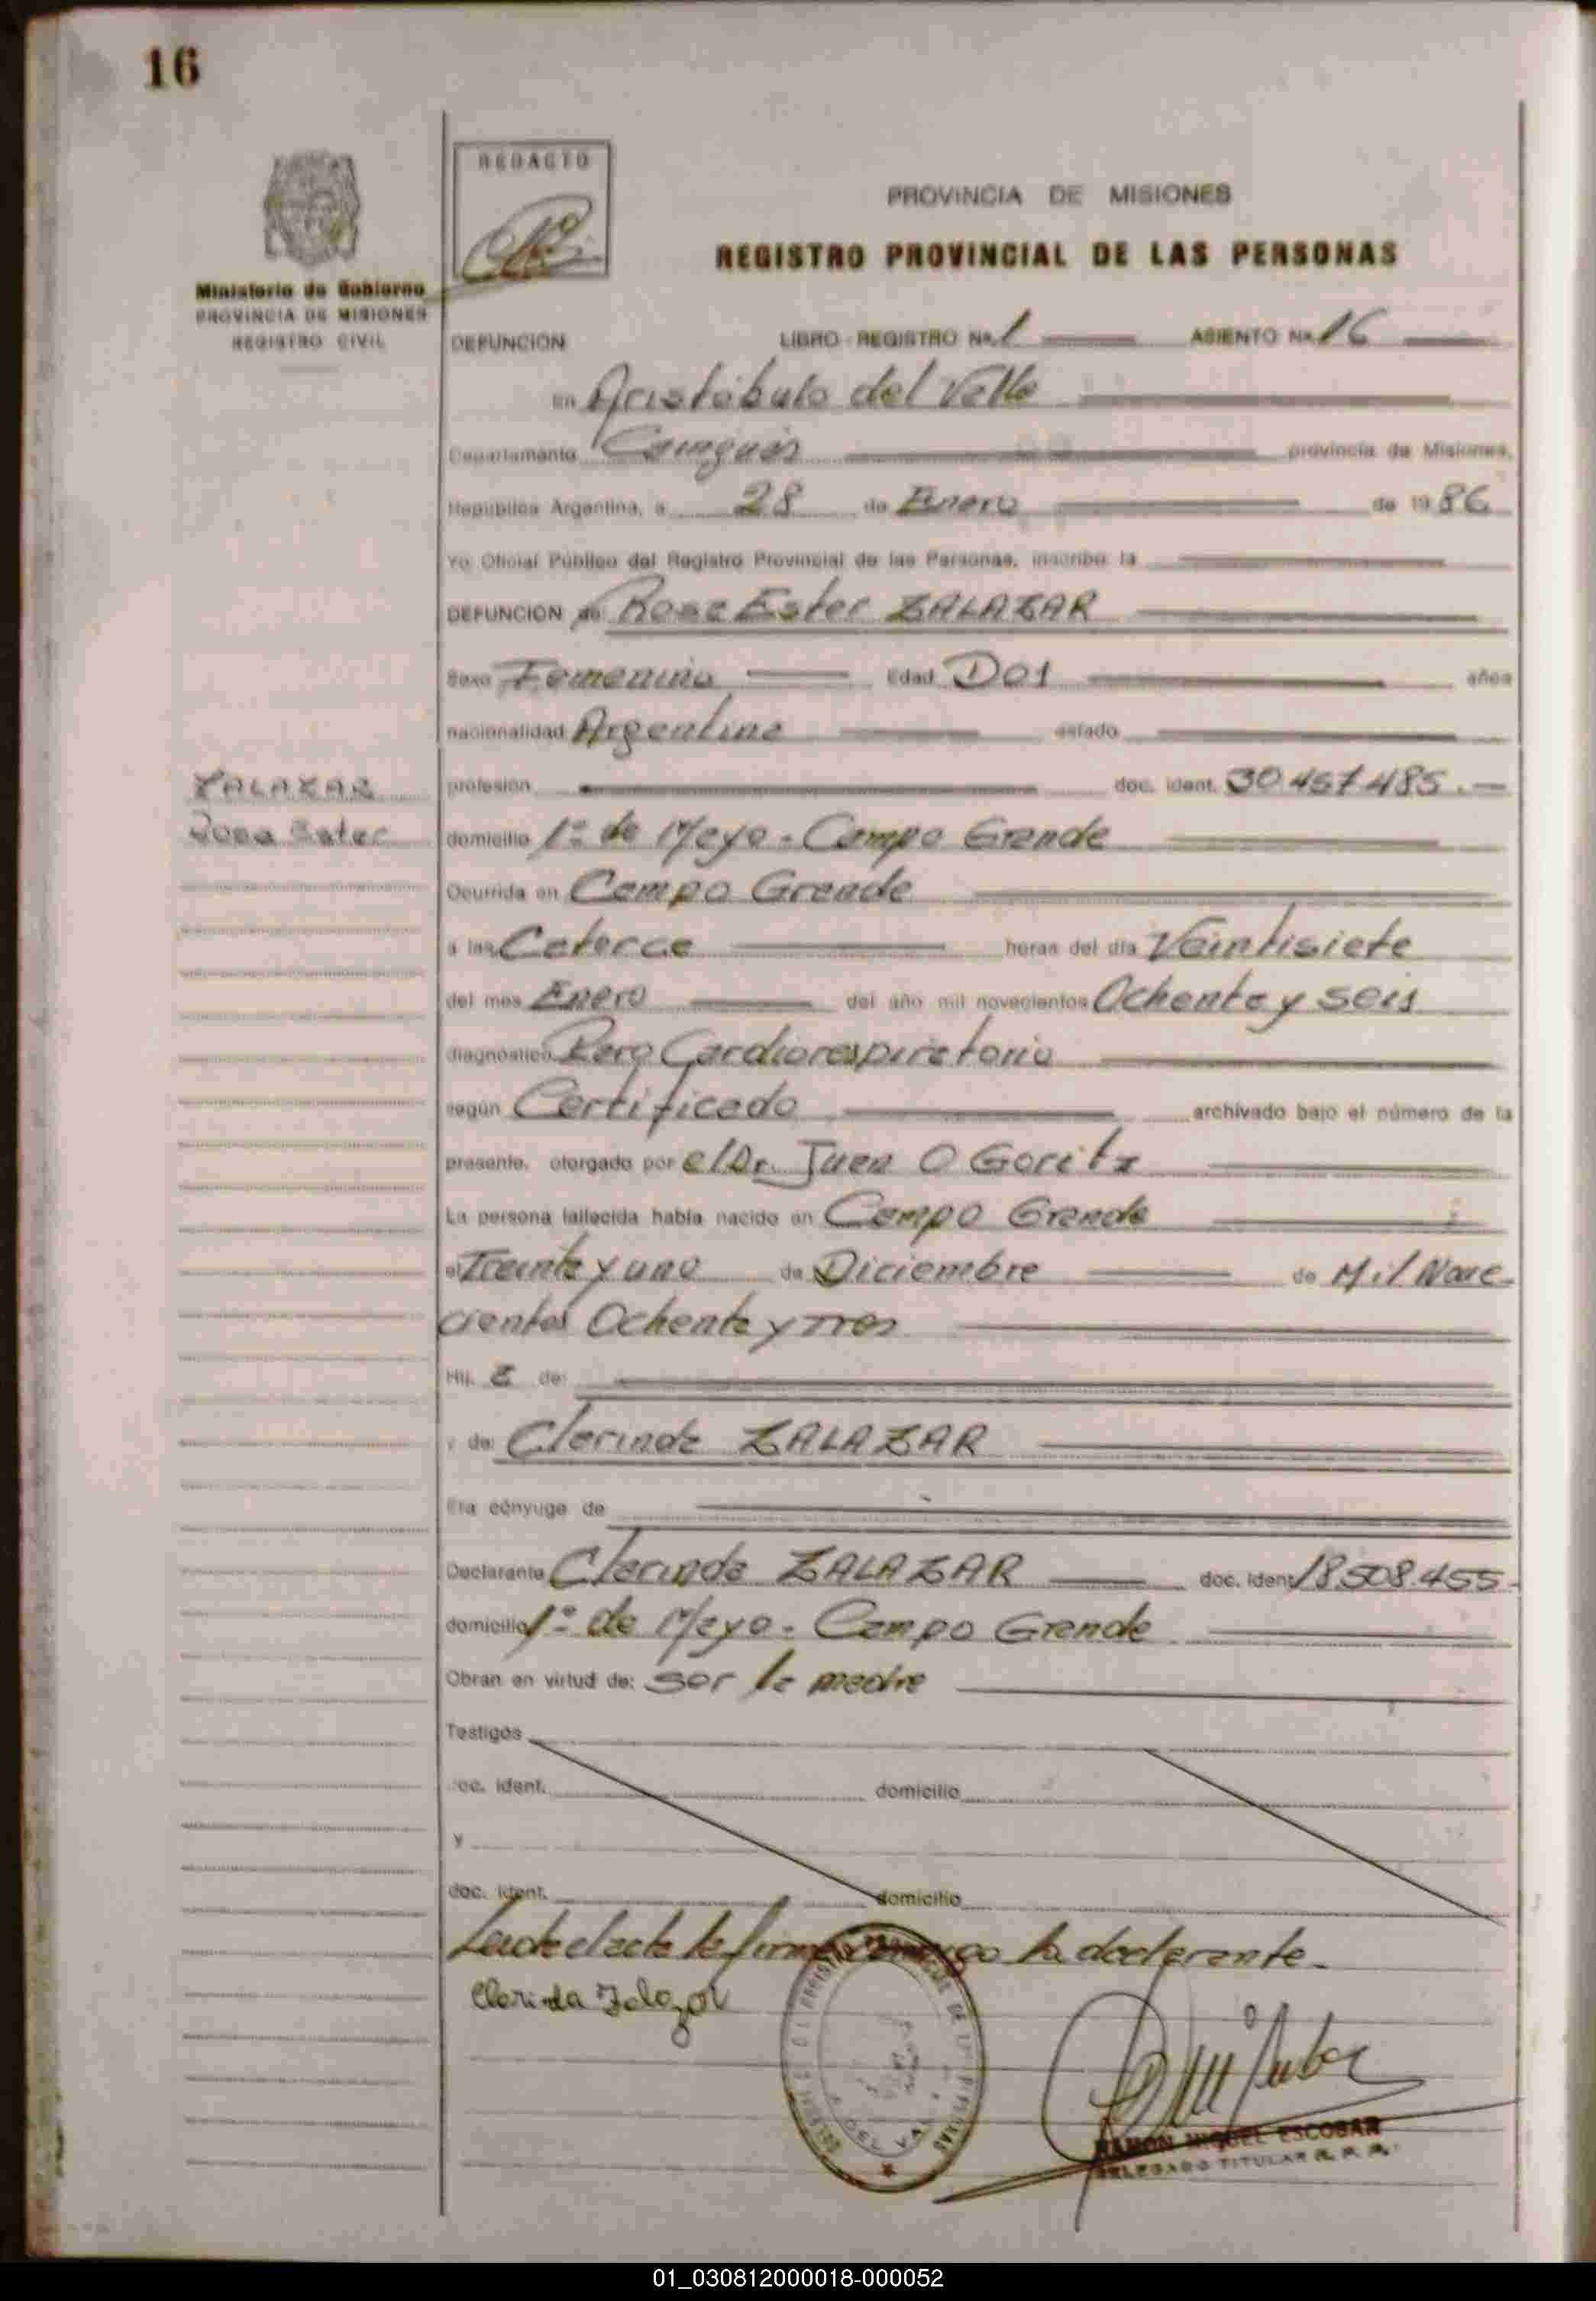 16
REDACTO
PROVINCIA DE MISIONES
REGISTRO PROVINCIAL DE LAS PERSONAS
Ministerio de Gobierno
PROVINCIA DE MISIONES
REGISTRO CIVIL
DEFUNCION LIBRO - REGISTRO Nº 1 ASIENTO Nº 16
En Aristóbulo del Valle
Departamento Cainguás provincia de Misiones,
República Argentina, a 28 de Enero de 1986
Yo Oficial Público del Registro Provincial de las Personas, inscribo la
DEFUNCION de: Rosa Ester ZALAZAR
Sexo Femenino Edad Dos años
nacionalidad Argentina estado
ZALAZAR
Rosa Ester
profesión doc. ident. 30.457.485.-
domicilio 1º de Mayo - Campo Grande
Ocurrida en Campo Grande
a las Catorce horas del día Veintisiete
del mes Enero del año mil novecientos Ochenta y seis
diagnóstico Paro Cardiorespiratorio
según Certificado archivado bajo el número de la
presente, otorgado por el Dr. Juan O Goritz
La persona fallecida había nacido en Campo Grande
el Treinta y uno de Diciembre de Mil Nove-
cientos Ochenta y Tres
Hij a de:
y de: Clarinda ZALAZAR
Era cónyuge de
Declarante Clarinda ZALAZAR doc. ident. 18.508.455-
domicilio 1º de Mayo - Campo Grande
Obran en virtud de: ser la madre
Testigos
doc. ident. domicilio
y
doc. ident. domicilio
Leída el acta la firma conmigo la declarante.
Clarinda Zalazar
DEL VALLE
RAMON MIQUEL ESCOBAR
DELEGADO TITULAR R. P. P.
01_030812000018-000052